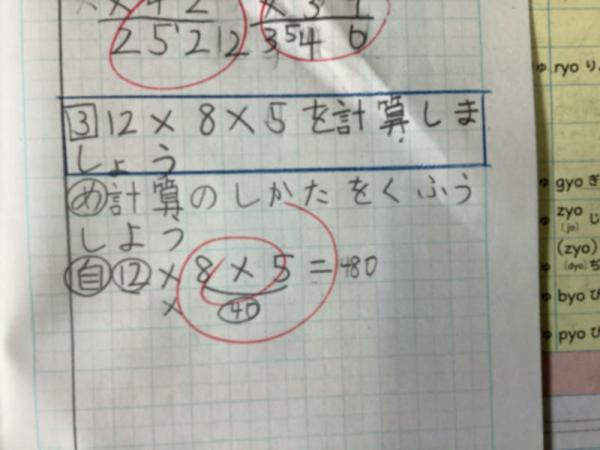 2 5 2 1 2
3 5 4 6
3 12 × 8 × 5 を計算しま
しょう
め 計算のしかたをくふう
しよう
自 12 × 8 × 5 = 480
× 40
ryo り
gyo ぎ
zyo じ
(jo)
(zyo) ぢ
(dyo)
byo び
pyo ぴ